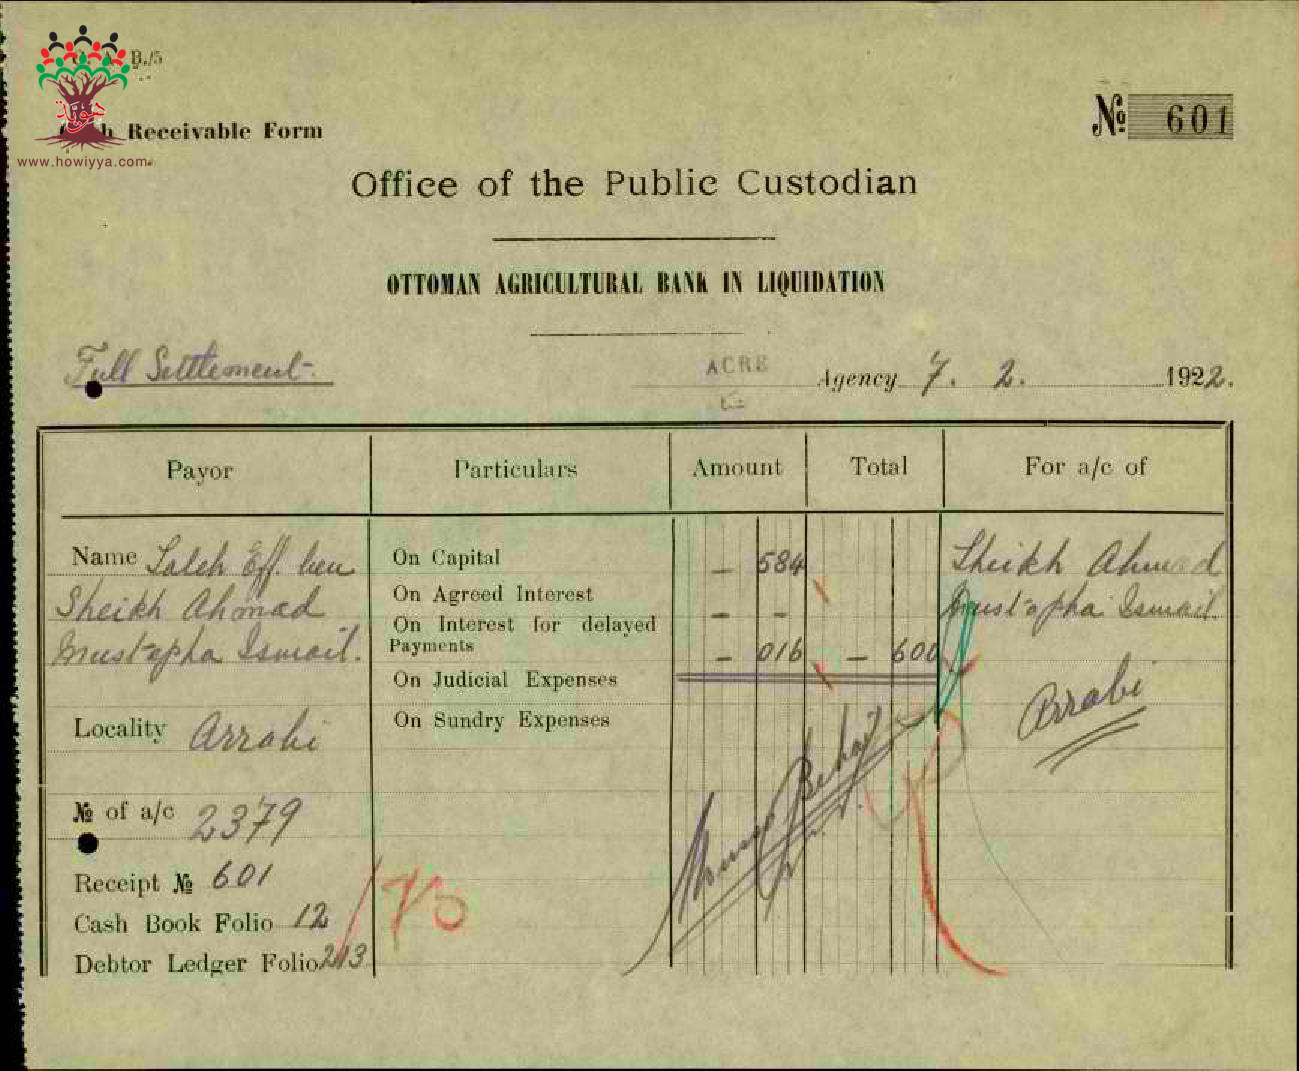 B./5
هوية
www.howiyya.com
Receivable Form
№ 601
Office of the Public Custodian
OTTOMAN AGRICULTURAL BANK IN LIQUIDATION
Full Settlement.
ACRE Agency 7. 2. 1922.
Payor Particulars Amount Total For a/c of
Name Saleh Eff. ben On Capital — 584 Sheikh Ahmad
Sheikh Ahmad On Agreed Interest — - Mustapha Ismail.
Mustapha Ismail. On Interest for delayed Payments — 016 — 600
On Judicial Expenses
Locality Arrabi On Sundry Expenses Arrabi
№ of a/c 2379
Receipt № 601
Cash Book Folio 12
Debtor Ledger Folio 213